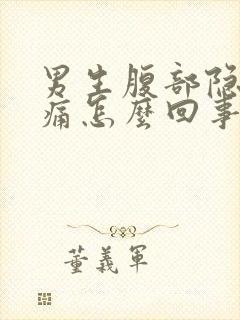 男生腹部隐
痛怎麼回事
董義軍